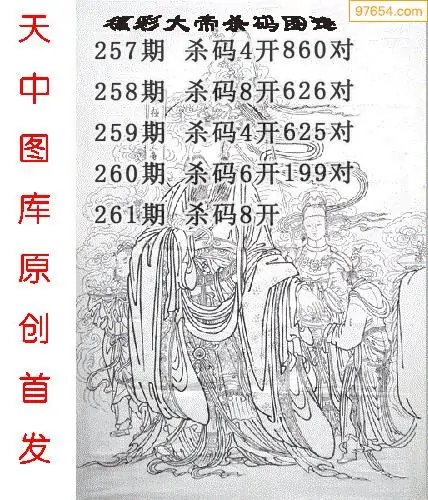 97654.com
福彩大帝杀码图谜
257期 杀码4开860对
258期 杀码8开626对
259期 杀码4开625对
260期 杀码6开199对
261期 杀码8开
天中图库原创首发